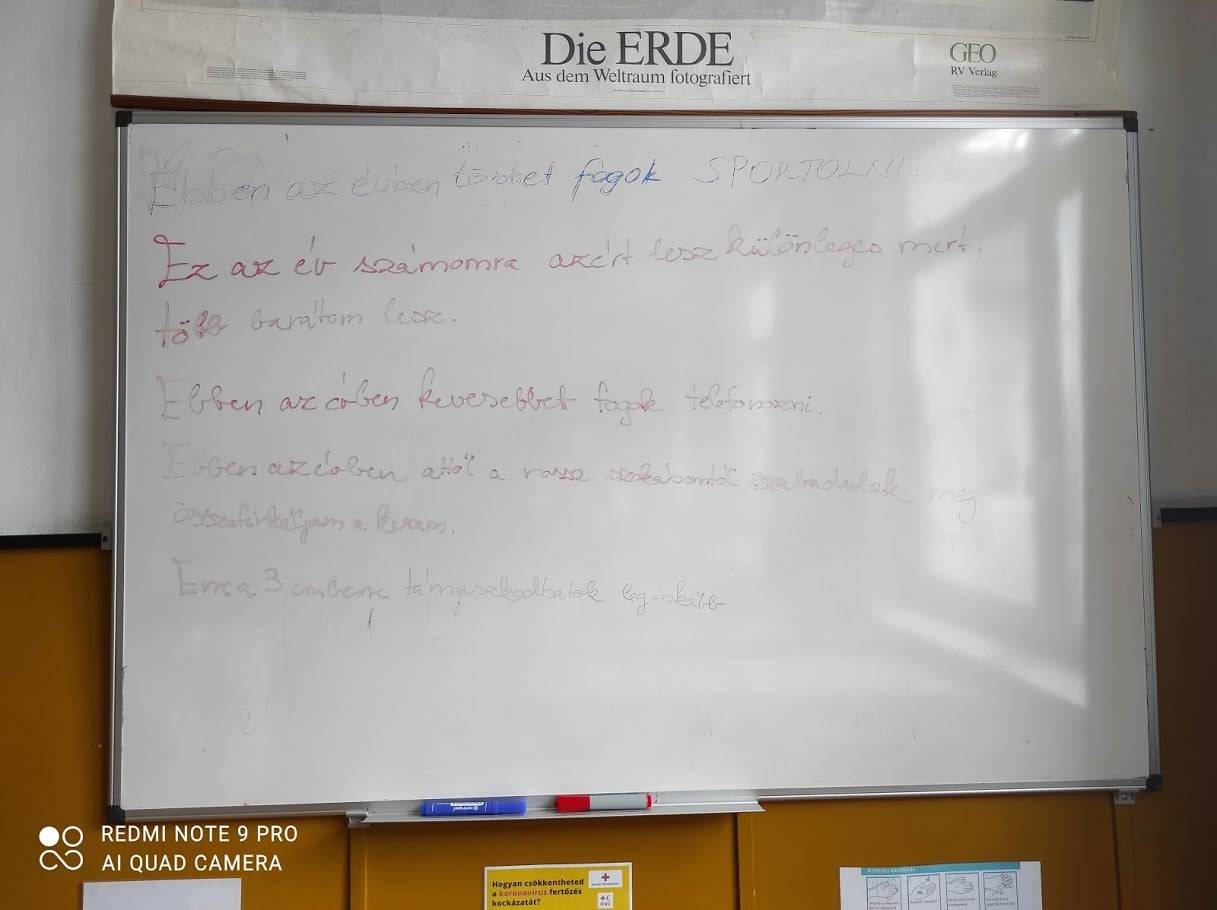 Die ERDE
Aus dem Weltraum fotografiert
GEO
RV Verlag
Ebben az évben többet fogok SPORTOLNI
Ez az év számomra azért lesz különleges mert,
több barátom lesz.
Ebben az évben kevesebbet fogok telefonozni.
Ebben az évben attól a rossz szokásomtól szabadulok meg
összefirkálgam a kezam.
Erre a 3 emberre támaszkodhatok leginkább
REDMI NOTE 9 PRO
AI QUAD CAMERA
Hogyan csökkentheted
a koronavírus fertőzés
kockázatát?
A helyes kézmosás